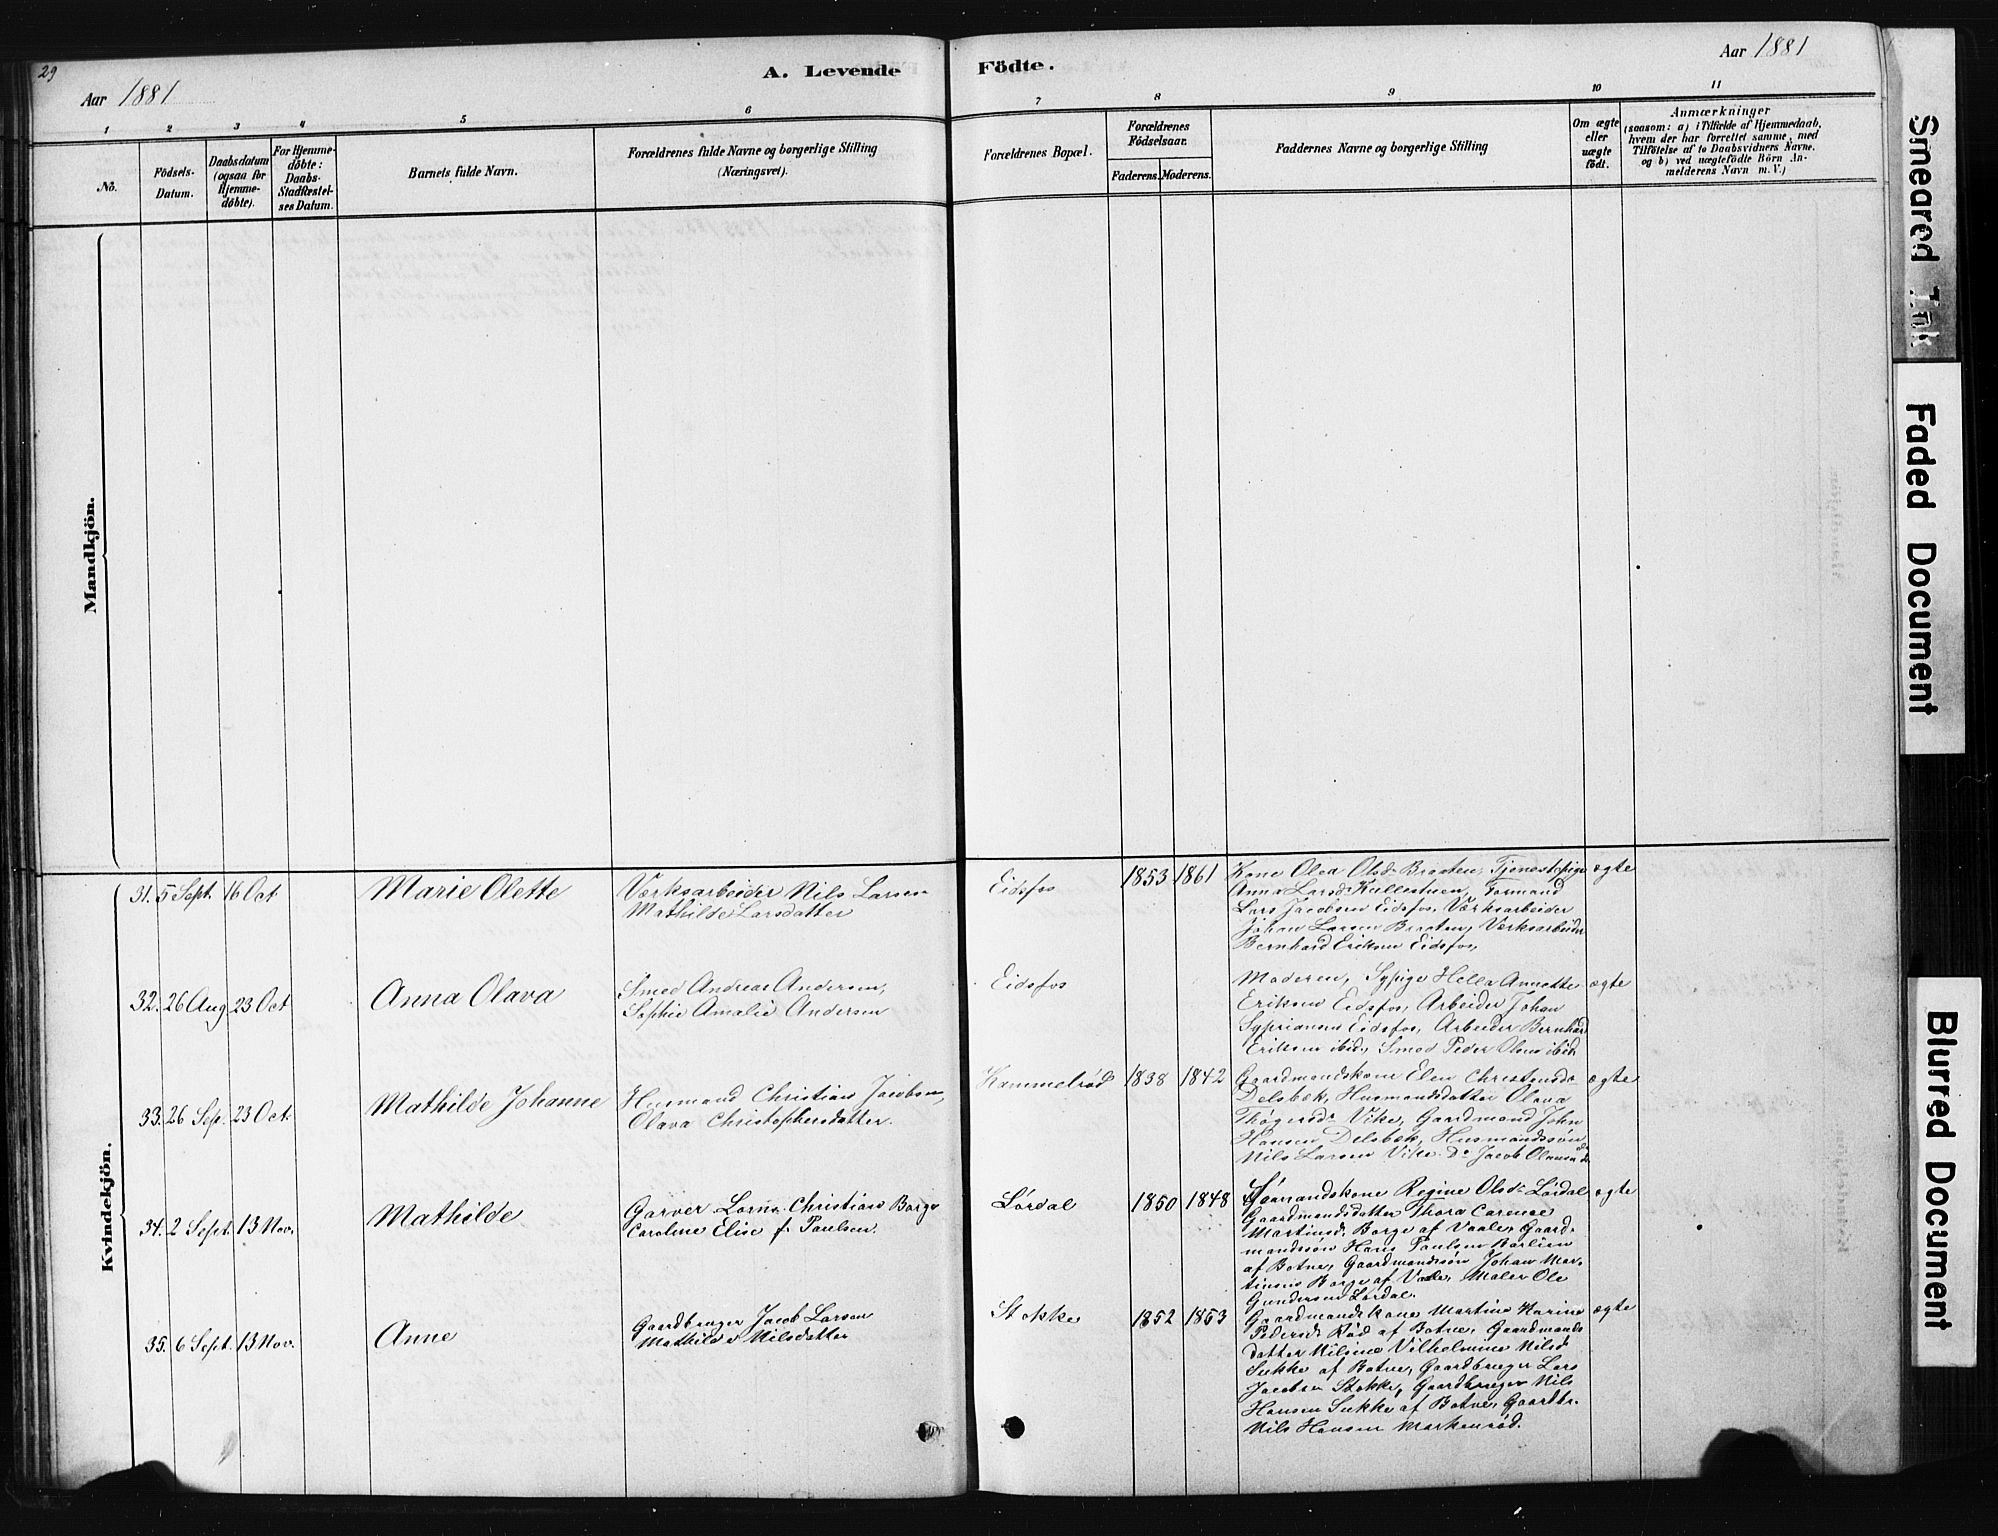 29
Aar 1881
A. Levende Födte.
Aar 1881
1 2 3 4 5 6 7 8 9 10 11
No.
Födsels-
Datum.
Daabsdatum
(ogsaa for
Hjemme-
döbte).
For Hjemme-
döbte:
Daabs-
Stadfæstel-
ses Datum.
Barnets fulde Navn.
Forældrenes fulde Navne og borgerlige Stilling
(Næringsvei).
Forældrenes Bopæl.
Forældrenes
Födselsaar.
Faderens. Moderens.
Faddernes Navne og borgerlige Stilling
Om ægte
eller
uægte
födt.
Anmærkninger
(saasom: a) i Tilfælde af Hjemmedaab,
hvem der har forrettet samme, med
Tilföielse af to Daabsvidners Navne,
og b) ved uægtefödte Börn An-
melderens Navn m. V.)
Mandkjön.
Kvindekjön.
31. 5 Sept. 16 Oct
Marie Olette
Værksarbeider Nils Larsen
Mathilde Larsdatter
Eidsfos
1853 1861
Kone Olea Olsd. Braaten, Tjenestepige
Anna Larsd. Kullestuen, Formand
Lars Jacobsen Eidsfos, Værksarbeider
Johan Larsen Braaten, Værksarbeider
Bernhard Eriksen Eidsfos,
ægte
32. 26 Aug 23 Oct
Anna Olava
Smed Andreas Andersen,
Sophie Amalie Andersen
Eidsfos
Moderen, Sypige Hella Annette
Eriksen Eidsfos, Arbeider Johan
Sypriansen Eidsfos, Arbeider Bernhard
Eriksen ibid., Smed Peder Olsen ibid.
ægte
33. 26 Sep. 23 Oct.
Mathilde Johanne
Husmand Christian Jacobsen,
Olava Christophersdatter.
Hammelrød
1838 1842
Gaardmandskone Elen Christensd.
Delsbæk, Husmandsdatter Olava
Thøgersd. Vike, Gaardmand John
Hansen Delsbæk, Husmandssøn
Nils Larsen Vike. Do Jacob Olausen do
ægte
34. 2 Sept. 13 Nov.
Mathilde
Garver Lorns Christian Borge
Caroline Elise f. Paulsen.
Lørdal
1850 1848
Gaardmandskone Regine Olsd. Lørdal
Gaardmandsdatter Thora Carense
Martinsd. Borge af Vaale, Gaard-
mandssøn Hans Paulsen Barlien
af Botne, Gaardmandssøn Johan Mar-
tinsen Borge af Vaale, Maler Ole
Gundersen Lørdal.
ægte
35. 6 Sept. 13 Nov.
Anne
Gaardbruger Jacob Larsen
Mathilde Nilsdatter
Stokke
1852 1853
Gaardmandskone Martine Karine
Pedersd. Rød af Botne, Gaardmands
datter Nilsine Vilhelmine Nilsd.
Sukke af Botne, Gaardbruger Lars
Jacobsen Stokke, Gaardbruger Nils
Hansen Sukke af Botne, Gaardbr.
Nils Hansen Markenrød.
ægte
Smeared Ink
Faded Document
Blurred Document